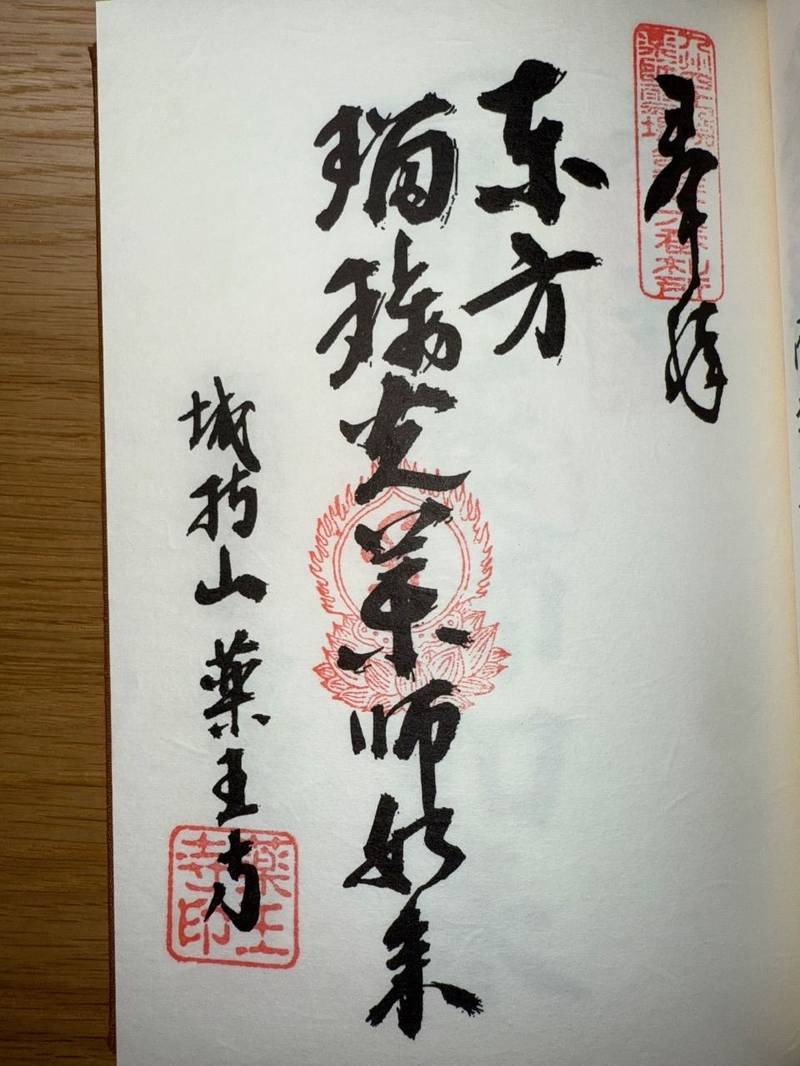 奉拝
東方
瑠璃光薬師如来
城持山 薬王寺
薬王
寺印